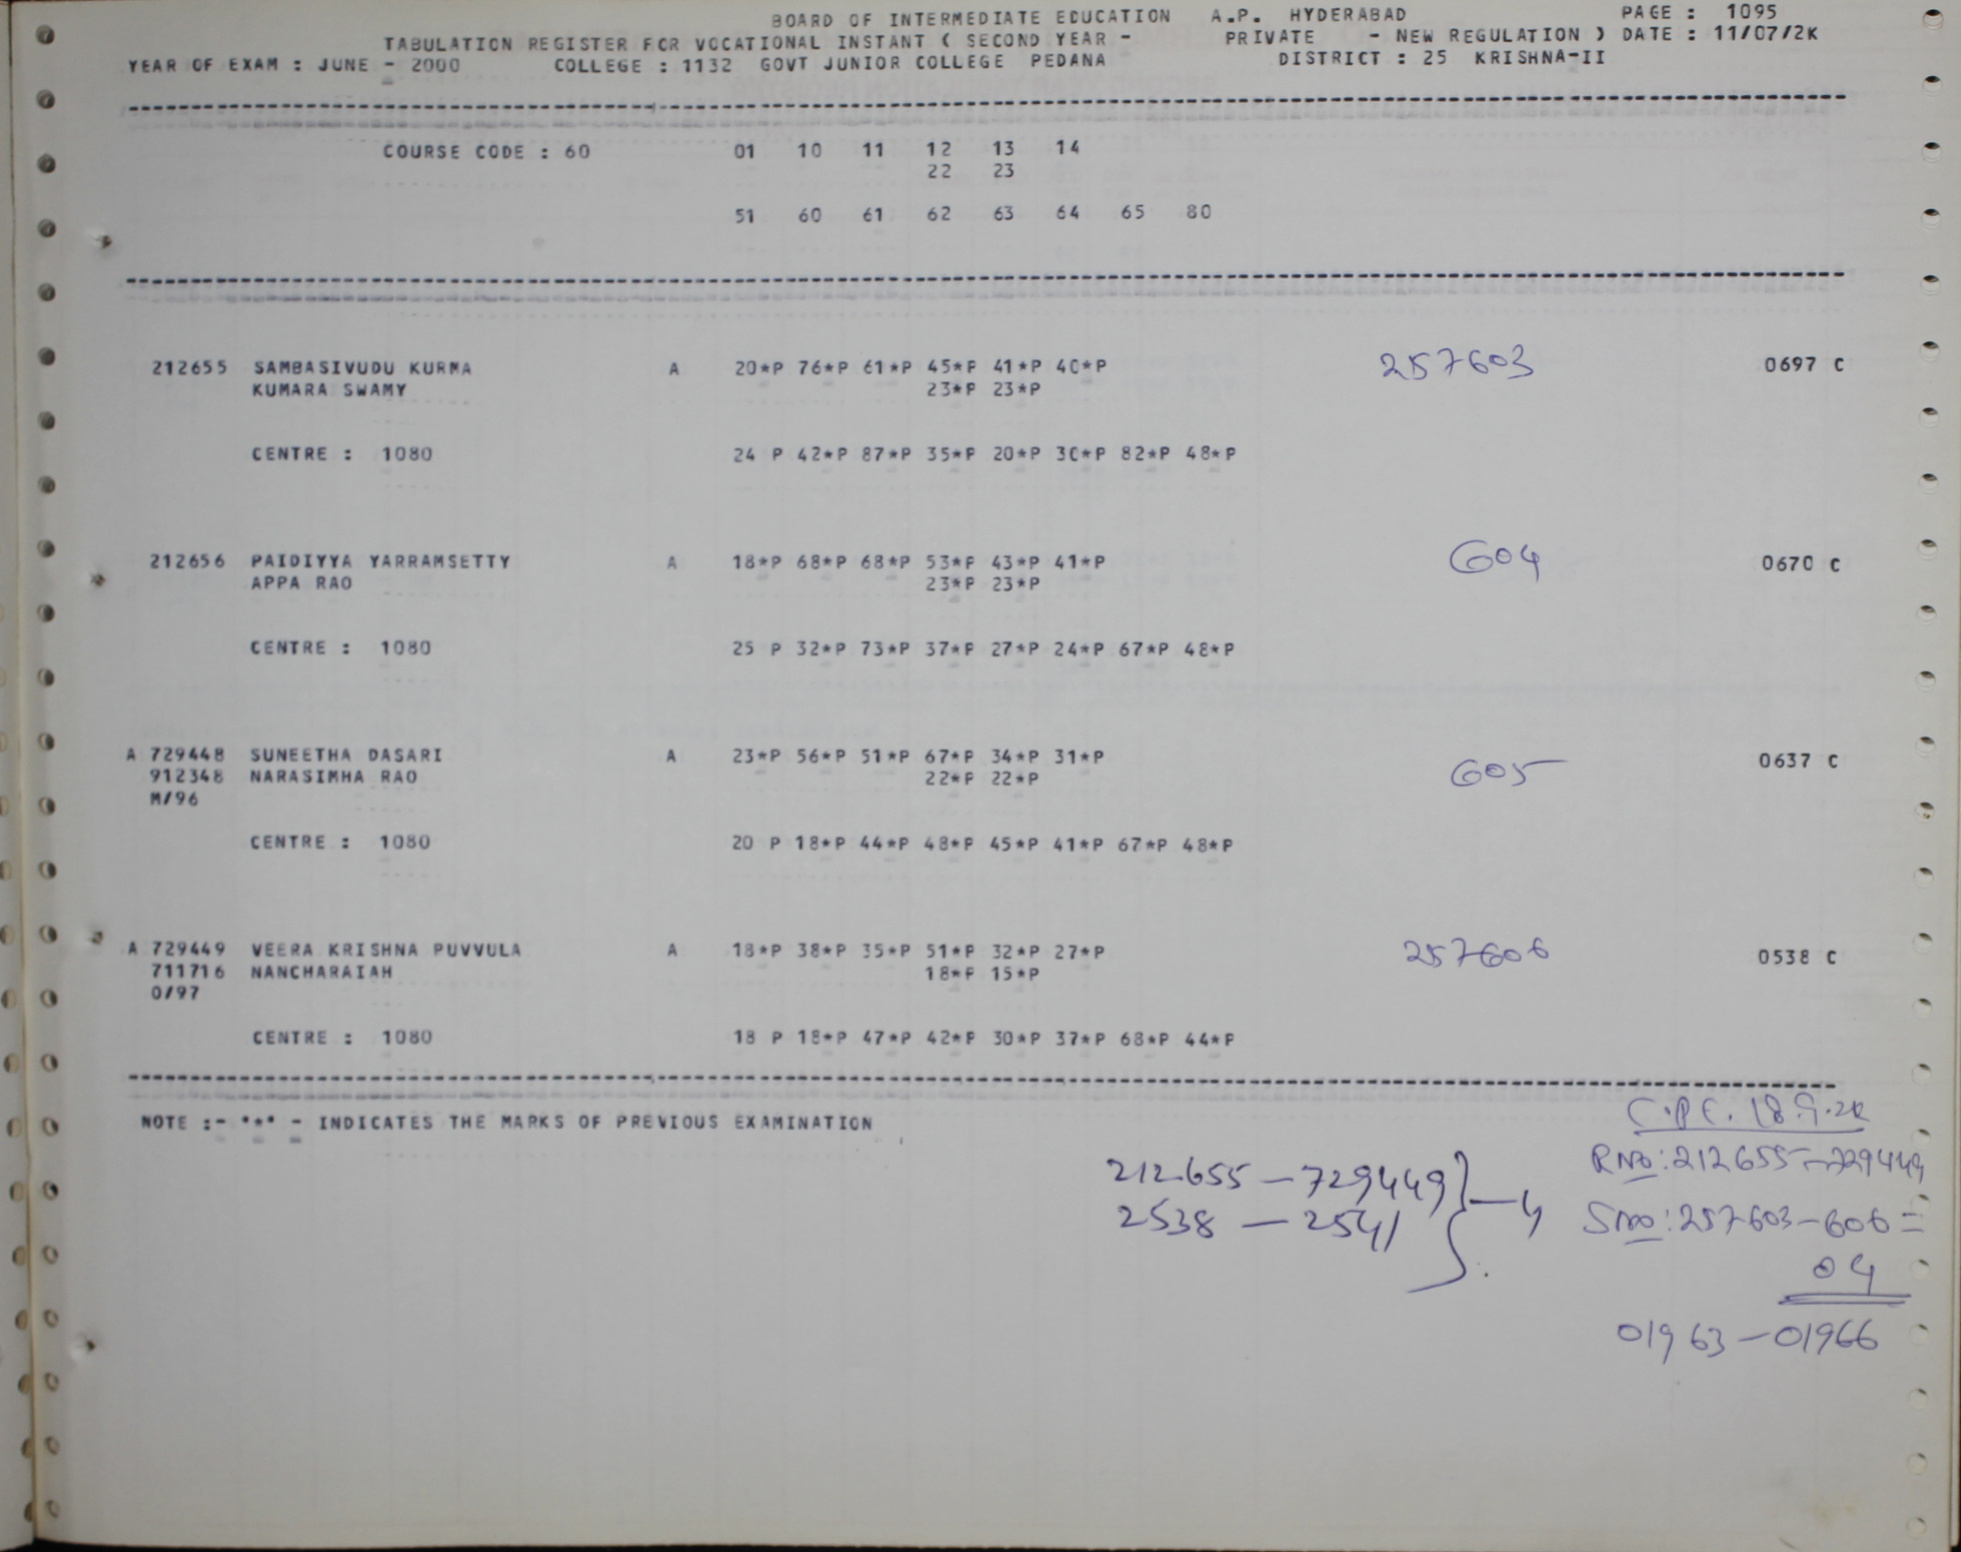 BOARD OF INTERMEDIATE EDUCATION A.P. HYDERABAD PAGE : 1095
TABULATION REGISTER FOR VOCATIONAL INSTANT ( SECOND YEAR - PRIVATE - NEW REGULATION ) DATE : 11/07/2K
YEAR OF EXAM : JUNE - 2000 COLLEGE : 1132 GOVT JUNIOR COLLEGE PEDANA DISTRICT : 25 KRISHNA-II
COURSE CODE : 60 01 10 11 12 13 14
22 23
51 60 61 62 63 64 65 80
212655 SAMBASIVUDU KURMA A 20*P 76*P 61*P 45*P 41*P 40*P 257603 0697 C
KUMARA SWAMY 23*P 23*P
CENTRE : 1080 24 P 42*P 87*P 35*P 20*P 30*P 82*P 48*P
212656 PAIDIYYA YARRAMSETTY A 18*P 68*P 68*P 53*P 43*P 41*P 604 0670 C
APPA RAO 23*P 23*P
CENTRE : 1080 25 P 32*P 73*P 37*P 27*P 24*P 67*P 48*P
A 729448 SUNEETHA DASARI A 23*P 56*P 51*P 67*P 34*P 31*P 605 0637 C
912348 NARASIMHA RAO 22*P 22*P
M/96
CENTRE : 1080 20 P 18*P 44*P 48*P 45*P 41*P 67*P 48*P
A 729449 VEERA KRISHNA PUVVULA A 18*P 38*P 35*P 51*P 32*P 27*P 257606 0538 C
711716 NANCHARAIAH 18*P 15*P
0/97
CENTRE : 1080 18 P 18*P 47*P 42*P 30*P 37*P 68*P 44*P
NOTE :- "*" - INDICATES THE MARKS OF PREVIOUS EXAMINATION
C.P.C. 18.9.2K
212655 - 729449 } - 4
2538 - 2541
RNo: 212655 - 729449
SNo: 257603 - 606 =
04
01963 - 01966